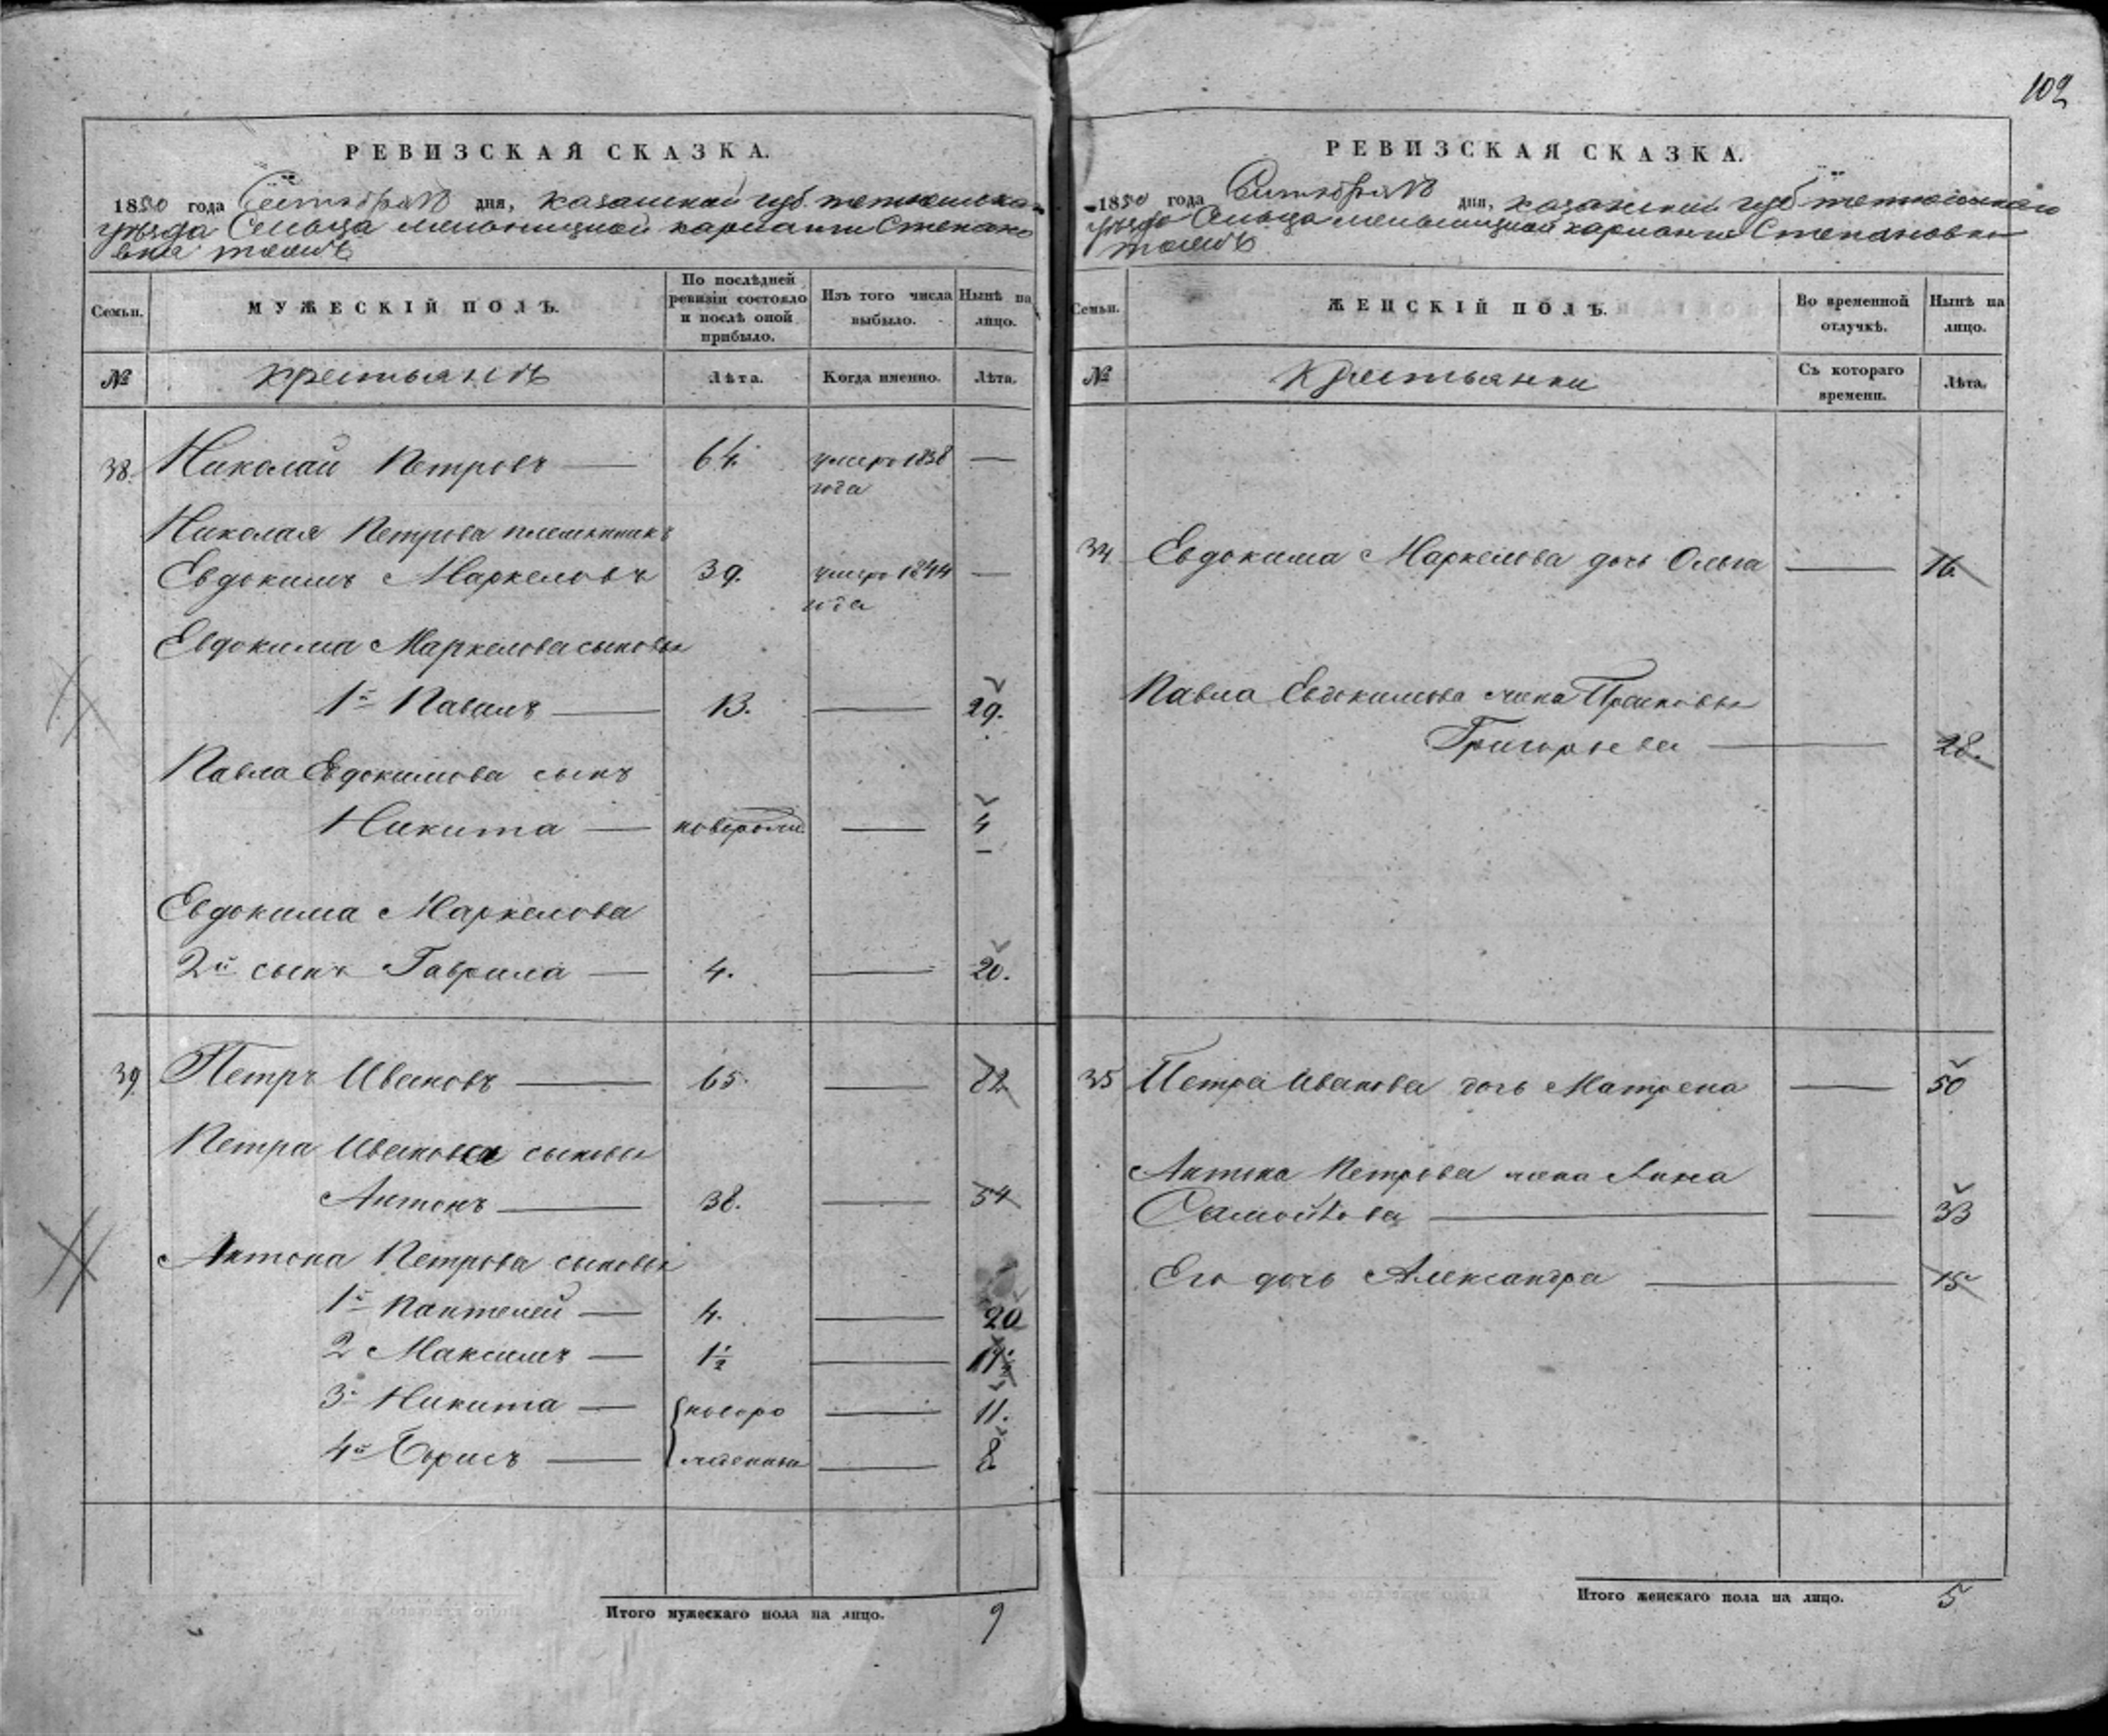 102
РЕВИЗСКАЯ СКАЗКА.
1850 года Сентября дня, Казанской губ. тетюшска
уѣзда Сельца мельницкой кармалы Степано
вка тожъ
Семьи.
МУЖЕСКІЙ ПОЛЪ.
По послѣдней ревизіи состояло и послѣ оной прибыло.
Изъ того числа выбыло.
Нынѣ на лицо.
№
Крестьянъ
Лѣта.
Когда именно.
Лѣта.
38. Николай Петровъ — 64. умеръ 1838 —
года
Николая Петрова племянникъ
Евдокимъ Маркеловъ 39. умеръ 1844 —
года
Евдокима Маркелова сыновья
1й Павелъ — 13. — 29.
Павла Евдокимова сынъ
Никита — новорожд — 4
Евдокима Маркелова
2й сынъ Гаврила — 4. — 20.
39 Петръ Ивановъ — 65. — 82
Петра Иванова сыновья
Антонъ — 38. — 54
Антона Петрова сыновья
1й Пантелей — 4. — 20
2 Максимъ — 1½ — 17½
3й Никита — новоро — 11.
4й Борисъ — жденны — 8
Итого мужескаго пола на лицо. 9
РЕВИЗСКАЯ СКАЗКА.
1850 года Сентября дня, казанской губ тетюшскаго
уѣзда Сельца мельницкой кармалы Степановка
тожъ
Семьи.
ЖЕНСКІЙ ПОЛЪ.
Во временной отлучкѣ.
Нынѣ на лицо.
№
Крестьянки
Съ котораго времени.
Лѣта.
34 Евдокима Маркелова дочь Ольга — 16.
Павла Евдокимова жена Прасковья
Григорьева — 28.
35 Петра Иванова дочь Матрена — 50
Антона Петрова жена Анна
Самойлова — — 33
Его дочь Александра — 15
Итого женскаго пола на лицо. 5